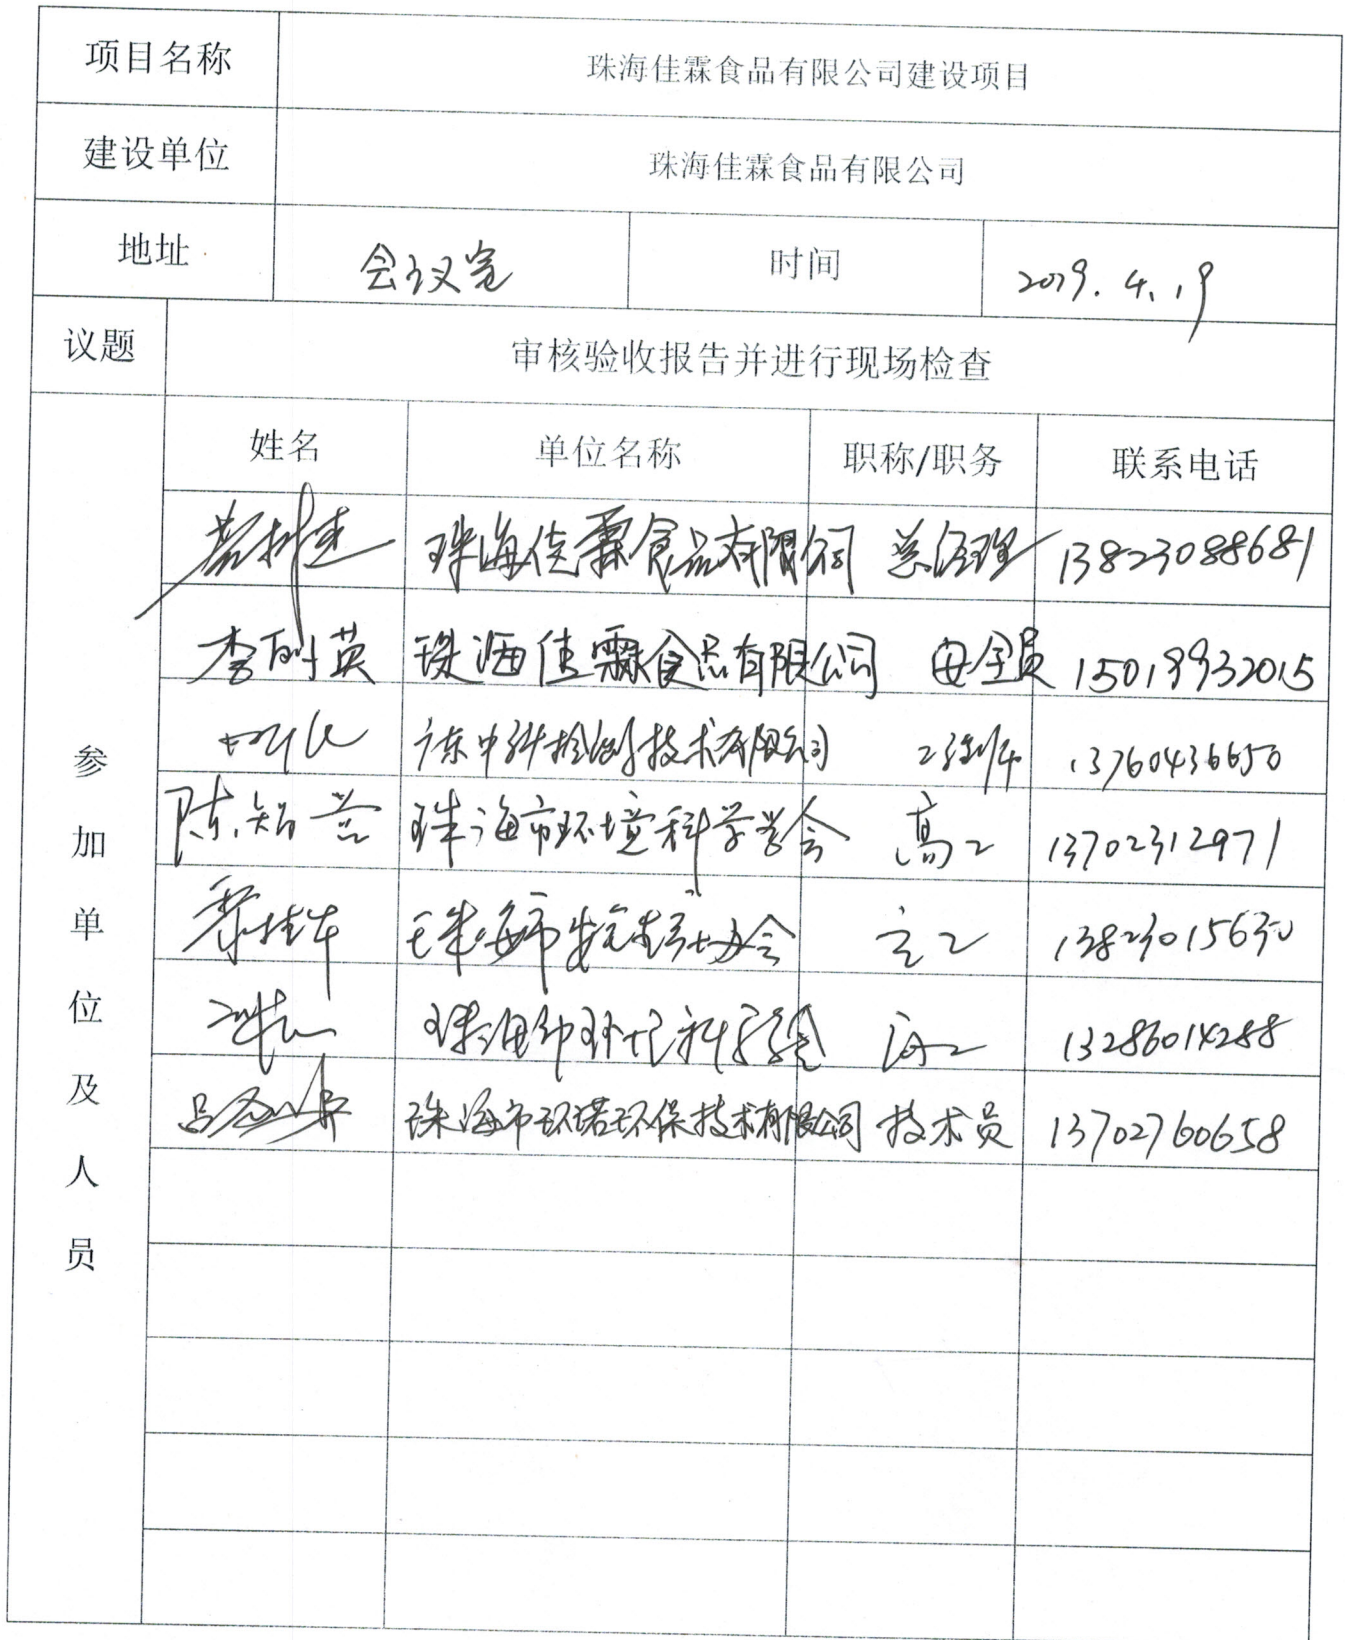 项目名称 珠海佳霖食品有限公司建设项目
建设单位 珠海佳霖食品有限公司
地址 会议室 时间 2019.4.19
议题 审核验收报告并进行现场检查
参加单位及人员
姓名 单位名称 职称/职务 联系电话
珠海佳霖食品有限公司 总经理 13823088681
李 英 珠海佳霖食品有限公司 安全员 15019932015
广东中科检测技术有限公司 工程师 13760436650
陈 珠海市环境科学学会 高工 13702312971
珠海市 协会 高工 13823015630
珠海市环境科学学会 高工 13286014288
吕 珠海市环诺环保技术有限公司 技术员 13702760658